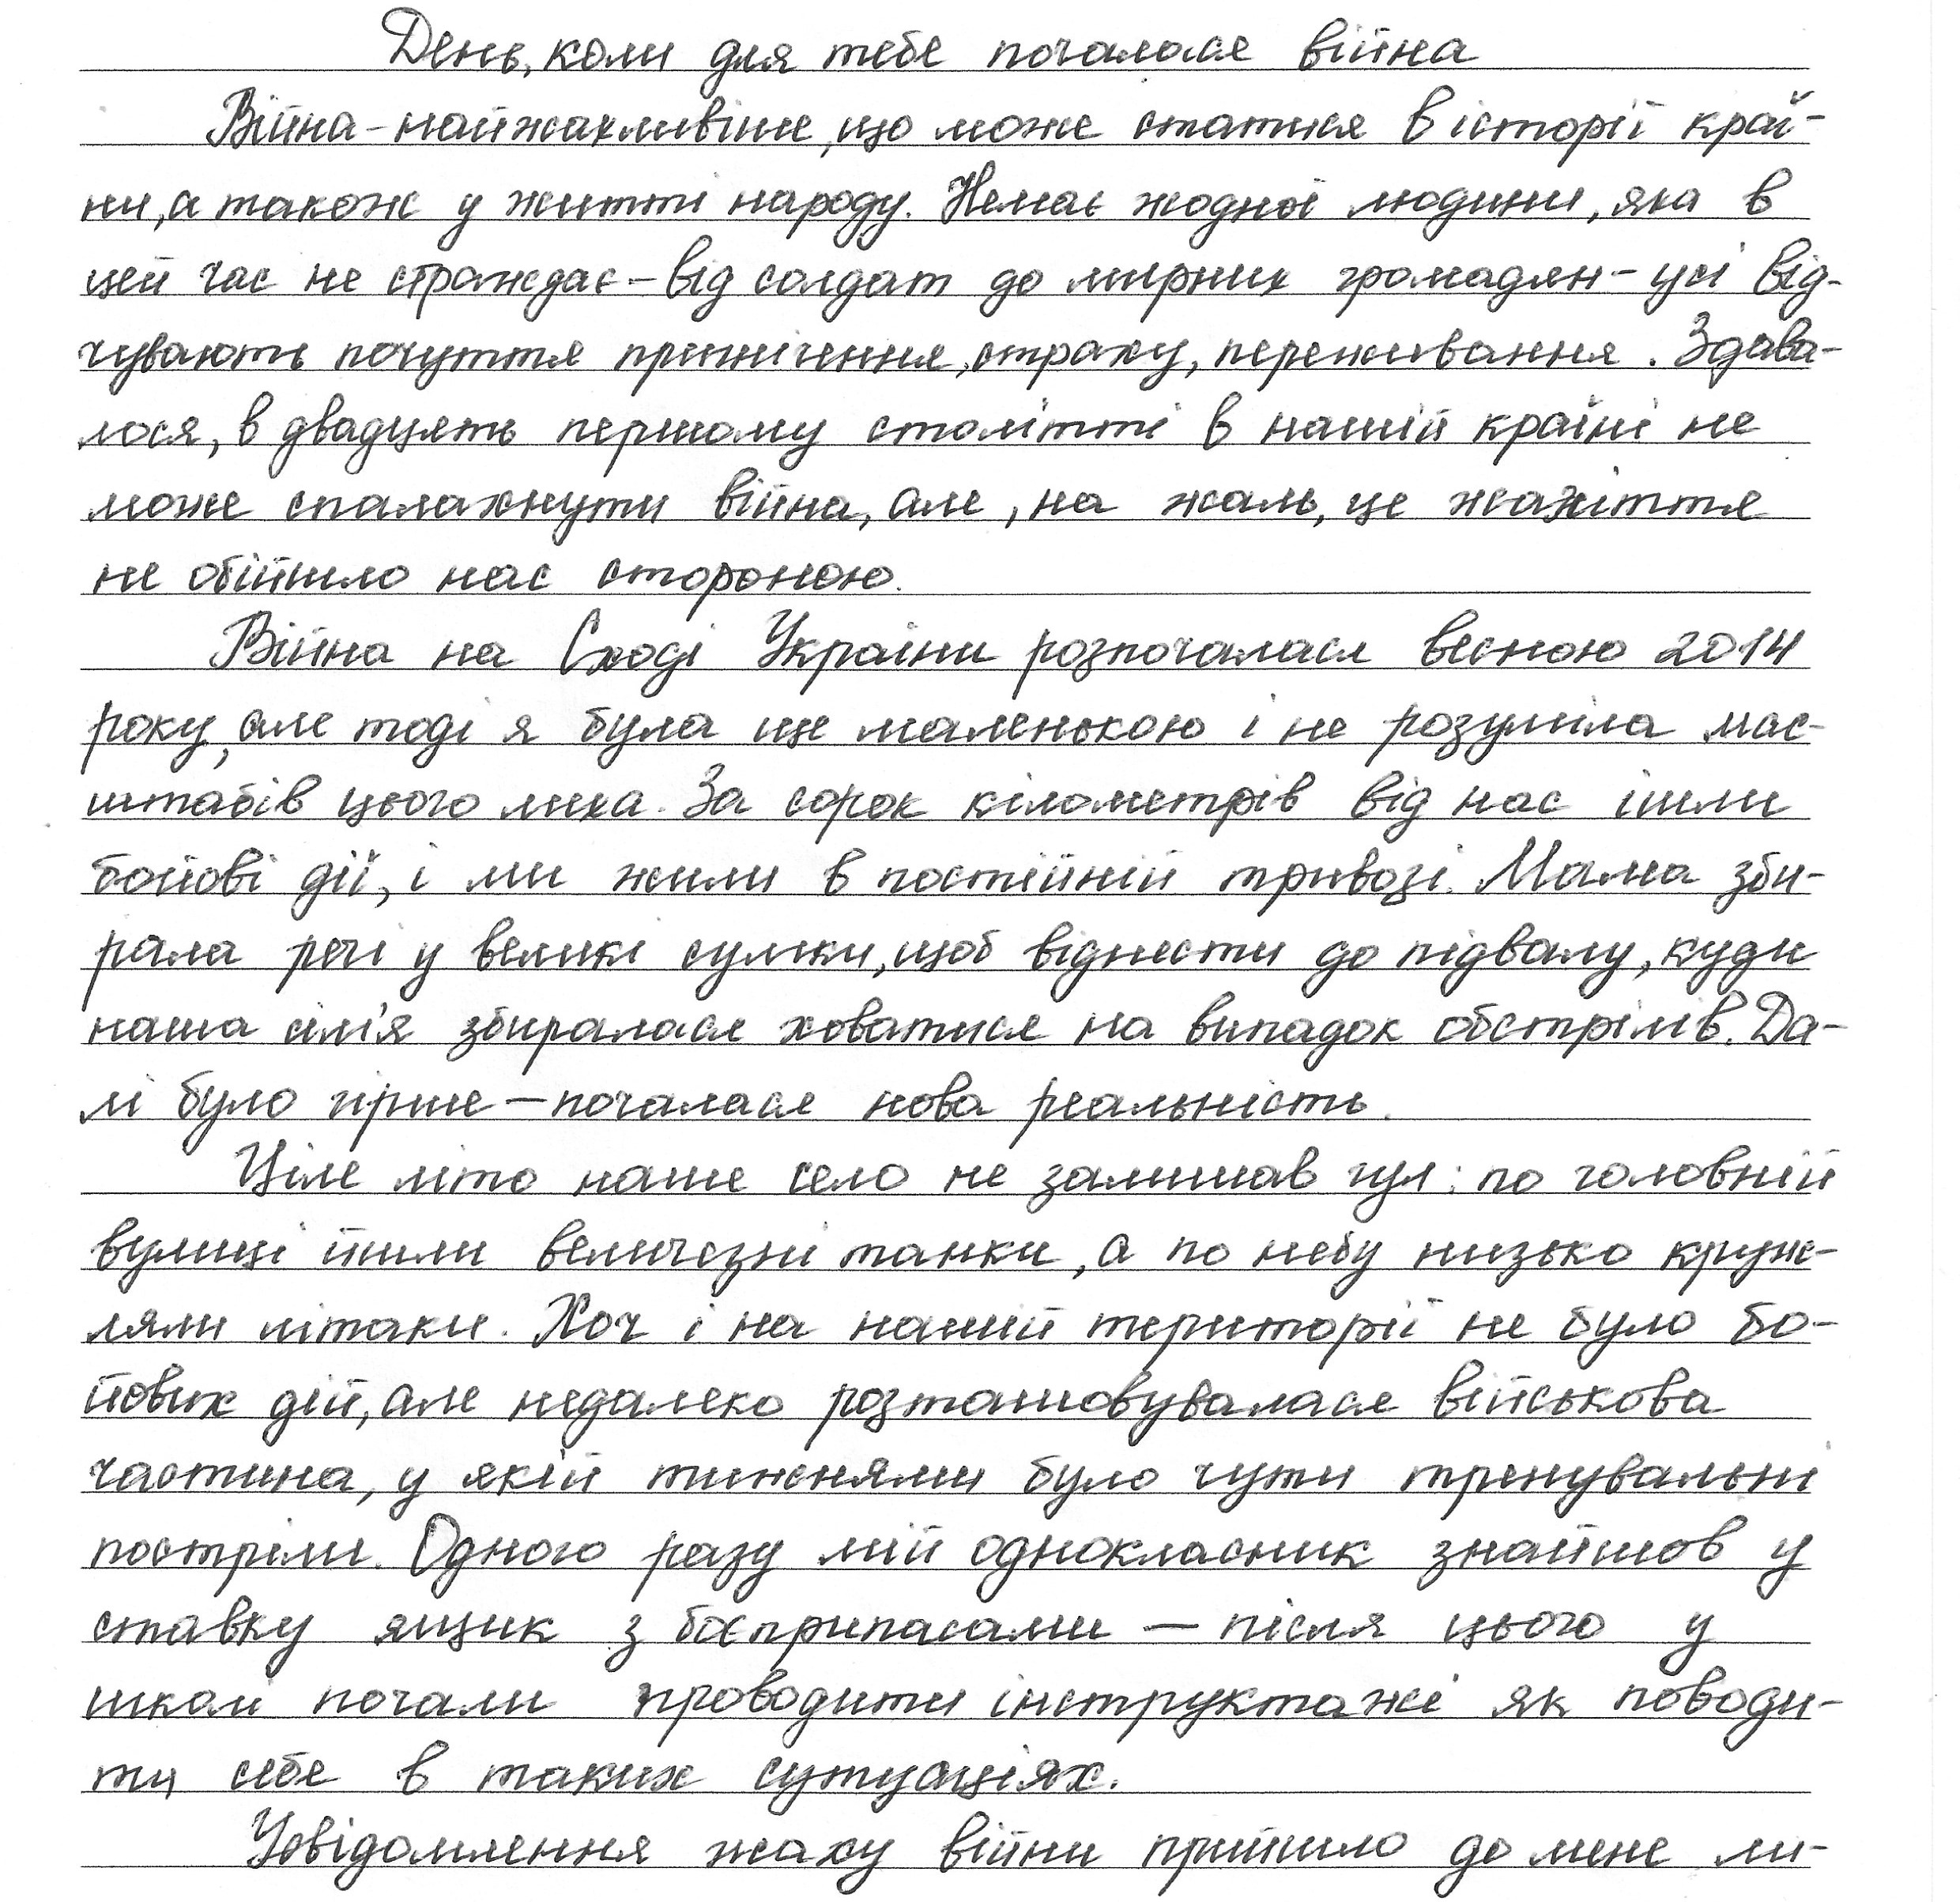 День, коли для тебе почалася війна
Війна - найжахливіше, що може статися в історії краї-
ни, а також у житті народу. Немає жодної людини, яка в
цей час не страждає - від солдат до мирних громадян - усі від-
чувають почуття пригнічення, страху, переживання. Здава-
лося, в двадцять першому столітті в нашій країні не
може спалахнути війна, але, на жаль, це жахіття
не обійшло нас стороною.
Війна на Сході України розпочалася весною 2014
року, але тоді я була ще маленькою і не розуміла мас-
штабів цього лиха. За сорок кілометрів від нас ішли
бойові дії, і ми жили в постійній тривозі. Мама зби-
рала речі у великі сумки, щоб віднести до підвалу, куди
наша сім'я збиралася ховатися на випадок обстрілів. Да-
лі було гірше - почалася нова реальність.
Ціле літо наше село не залишав гул: по головній
вулиці йшли величезні танки, а по небу низько круж-
ляли літаки. Хоч і на нашій території не було бо-
йових дій, але недалеко розташовувалася військова
частина, у якій тижнями було чути тренувальні
постріли. Одного разу мій однокласник знайшов у
ставку ящик з боєприпасами — після цього у
школі почали проводити інструктажі як поводи-
ти себе в таких ситуаціях.
Усвідомлення жаху війни прийшло до мене ли-